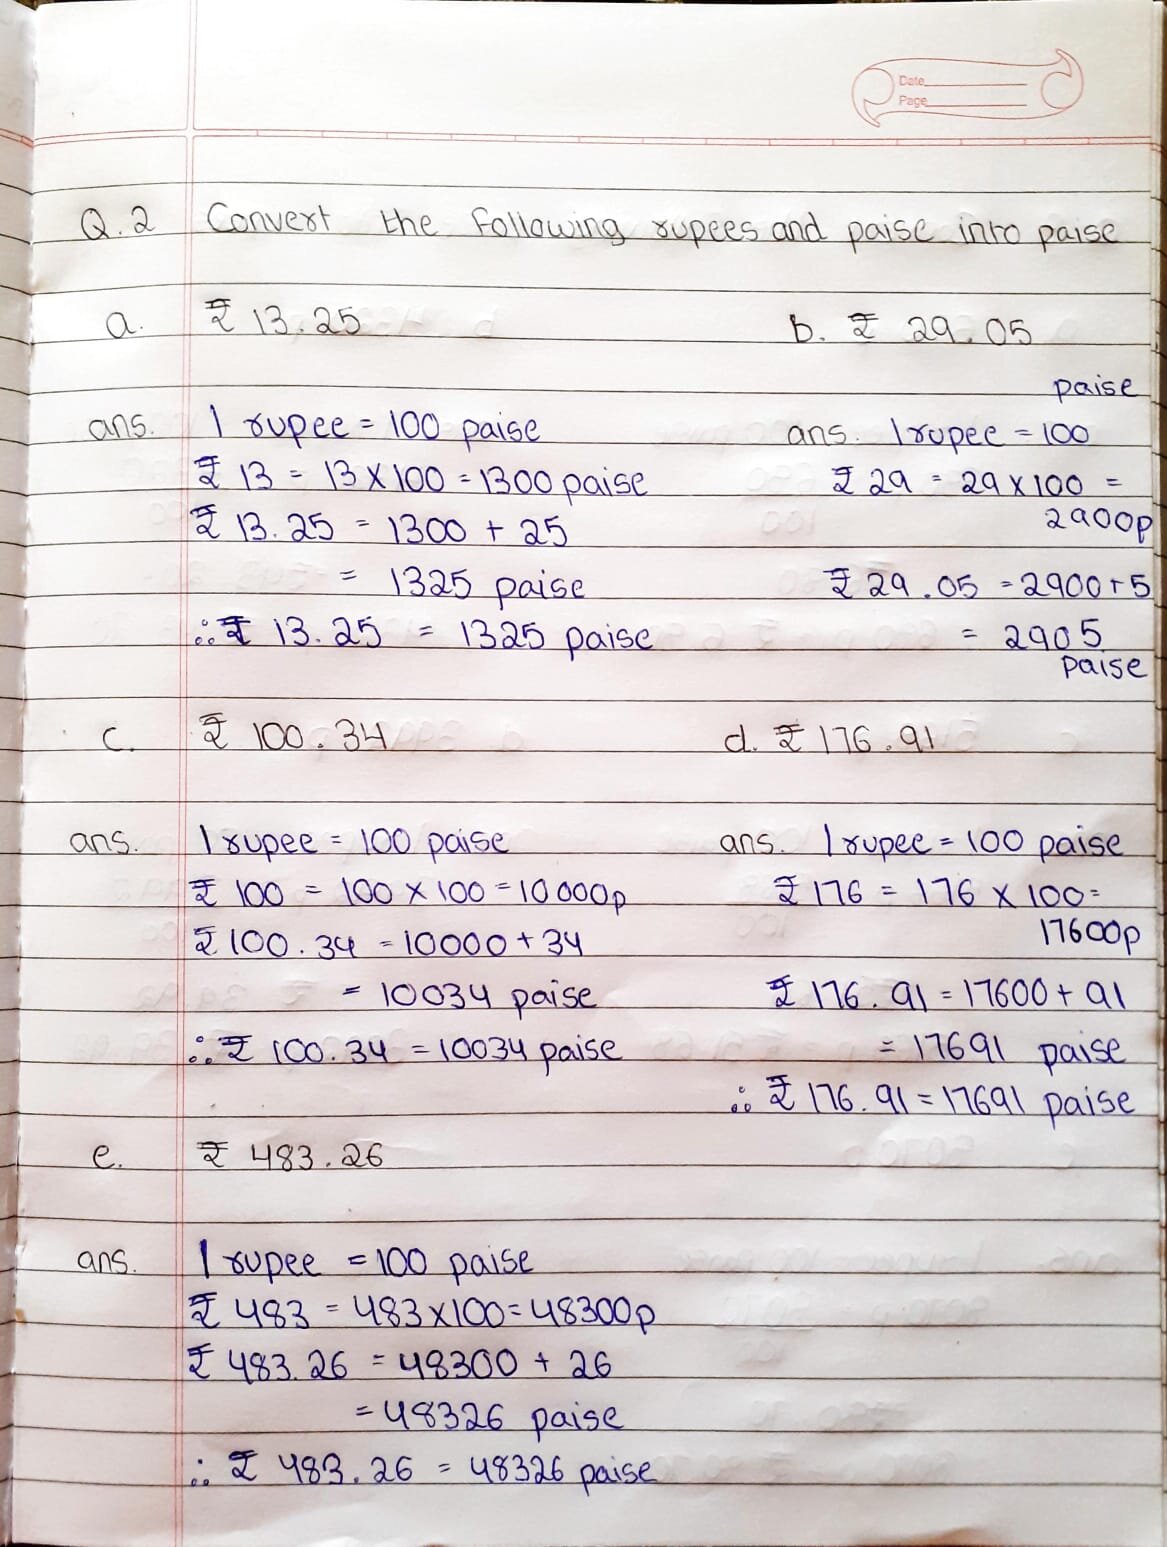 Date
Page
Q.2 Convert the following rupees and paise into paise
a. ₹ 13.25
ans. 1 rupee = 100 paise
₹ 13 = 13 x 100 = 1300 paise
₹ 13.25 = 1300 + 25
= 1325 paise
∴ ₹ 13.25 = 1325 paise
b. ₹ 29.05
paise
ans. 1 rupee = 100
₹ 29 = 29 x 100 =
2900p
₹ 29.05 = 2900+5
= 2905
paise
c. ₹ 100.34
ans. 1 rupee = 100 paise
₹ 100 = 100 x 100 = 10000p
₹ 100.34 = 10000 + 34
= 10034 paise
∴ ₹ 100.34 = 10034 paise
d. ₹ 176.91
ans. 1 rupee = 100 paise
₹ 176 = 176 x 100 =
17600p
₹ 176.91 = 17600 + 91
= 17691 paise
∴ ₹ 176.91 = 17691 paise
e. ₹ 483.26
ans. 1 rupee = 100 paise
₹ 483 = 483 x 100 = 48300p
₹ 483.26 = 48300 + 26
= 48326 paise
∴ ₹ 483.26 = 48326 paise